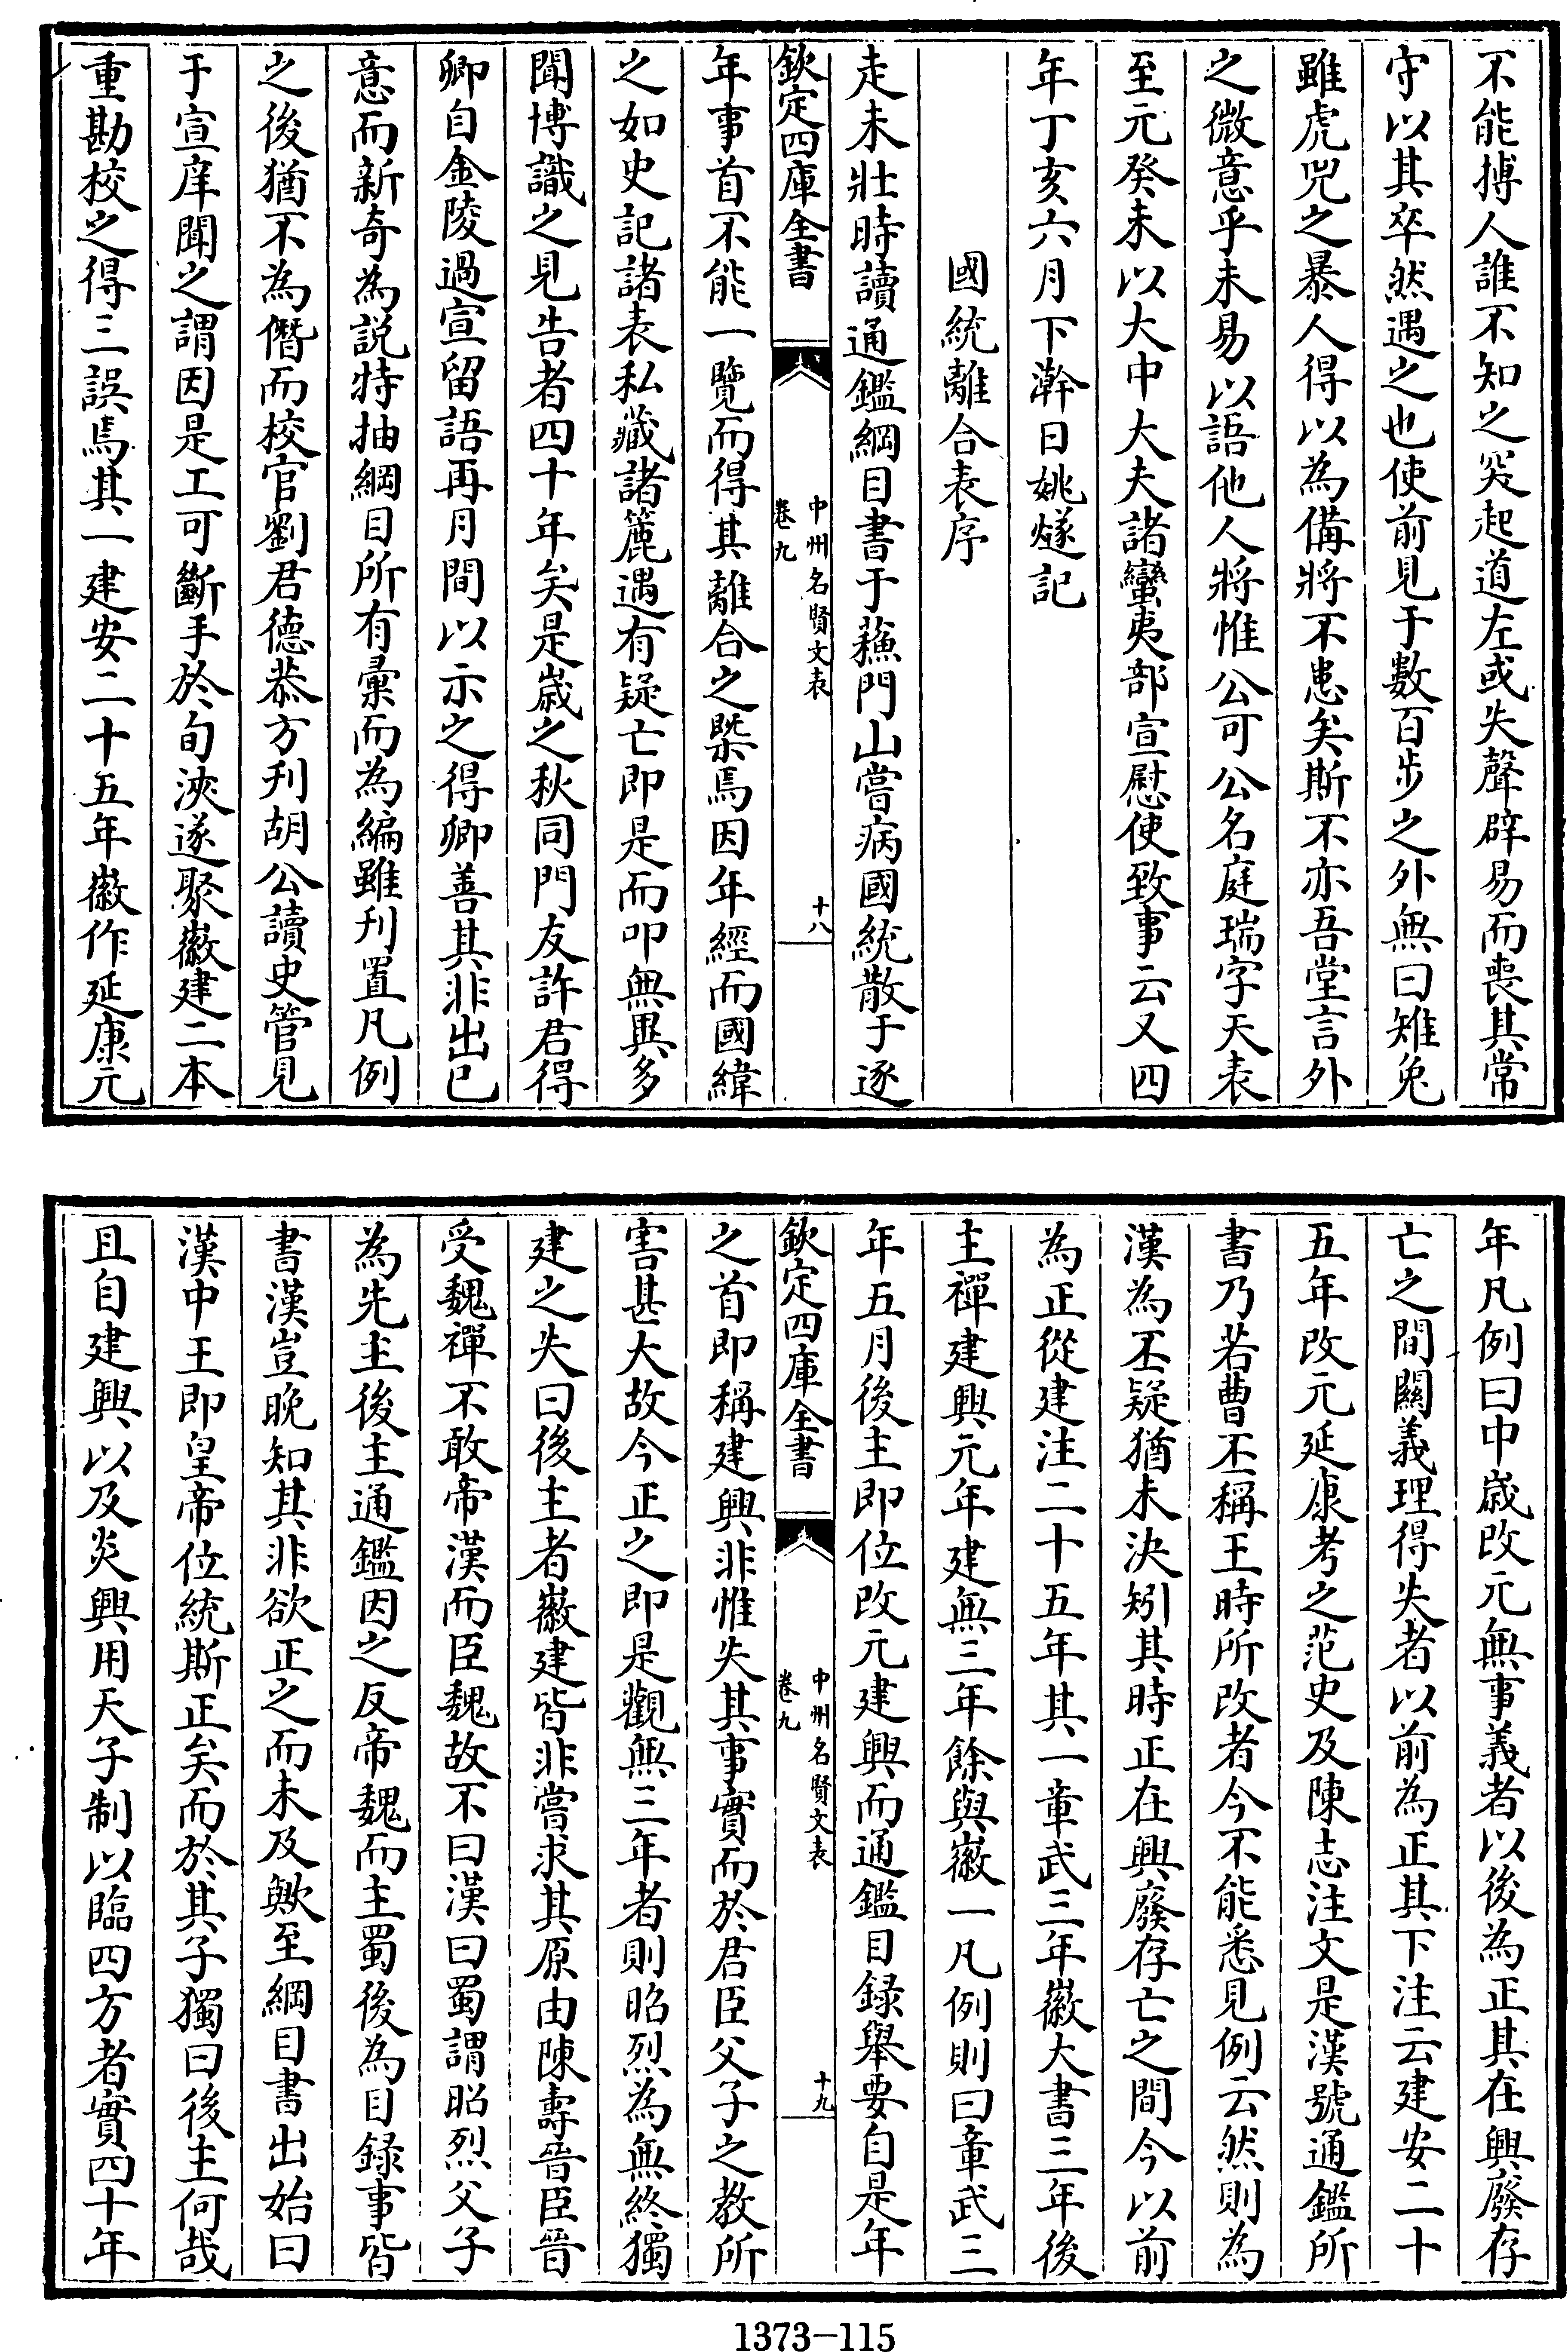 不能搏人誰不知之突起道左或失聲辟易而喪其常
守以其卒然遇之也使前見于數百步之外無曰雉兔
雖虎兕之暴人得以為備將不患矣斯不亦吾堂言外
之微意乎未易以語他人將惟公可公名庭瑞字天表
至元癸未以大中大夫諸蠻夷部宣慰使致事云又四
年丁亥六月下澣日姚燧記
國統離合表序
走未壯時讀通鑑綱目書于蘓門山嘗病國統散于逐
欽定四庫全書
中州名賢文表
卷九
十八
年事首不能一覽而得其離合之槩焉因年經而國緯
之如史記諸表私藏諸簏遇有疑亡即是而叩無異多
聞博識之見告者四十年矣是嵗之秋同門友許君得
卿自金陵過宣留語再月間以示之得卿善其非出已
意而新奇為説特抽綱目所有彙而為編雖刋置凡例
之後猶不為僭而校官劉君德恭方刋胡公讀史管見
于宣庠聞之謂因是工可斷手於旬浹遂聚徽建二本
重勘校之得三誤焉其一建安二十五年徽作延康元
年凡例曰中嵗改元無事義者以後為正其在興廢存
亡之間關義理得失者以前為正其下注云建安二十
五年改元延康考之范史及陳志注文是漢號通鑑所
書乃若曹丕稱王時所改者今不能悉見例云然則為
漢為丕疑猶未決矧其時正在興廢存亡之間今以前
為正從建注二十五年其一章武三年徽大書三年後
主禪建興元年建無三年餘與徽一凡例則曰章武三
年五月後主即位改元建興而通鑑目録舉要自是年
欽定四庫全書
中州名賢文表
卷九
十九
之首即稱建興非惟失其事實而於君臣父子之教所
害甚大故今正之即是觀無三年者則昭烈為無終獨
建之失曰後主者徽建皆非嘗求其原由陳壽晉臣晉
受魏禪不敢帝漢而臣魏故不曰漢曰蜀謂昭烈父子
為先主後主通鑑因之反帝魏而主蜀後為目録事皆
書漢豈晚知其非欲正之而未及歟至綱目書出始曰
漢中王即皇帝位統斯正矣而於其子獨曰後主何哉
且自建興以及炎興用天子制以臨四方者實四十年
1373-115